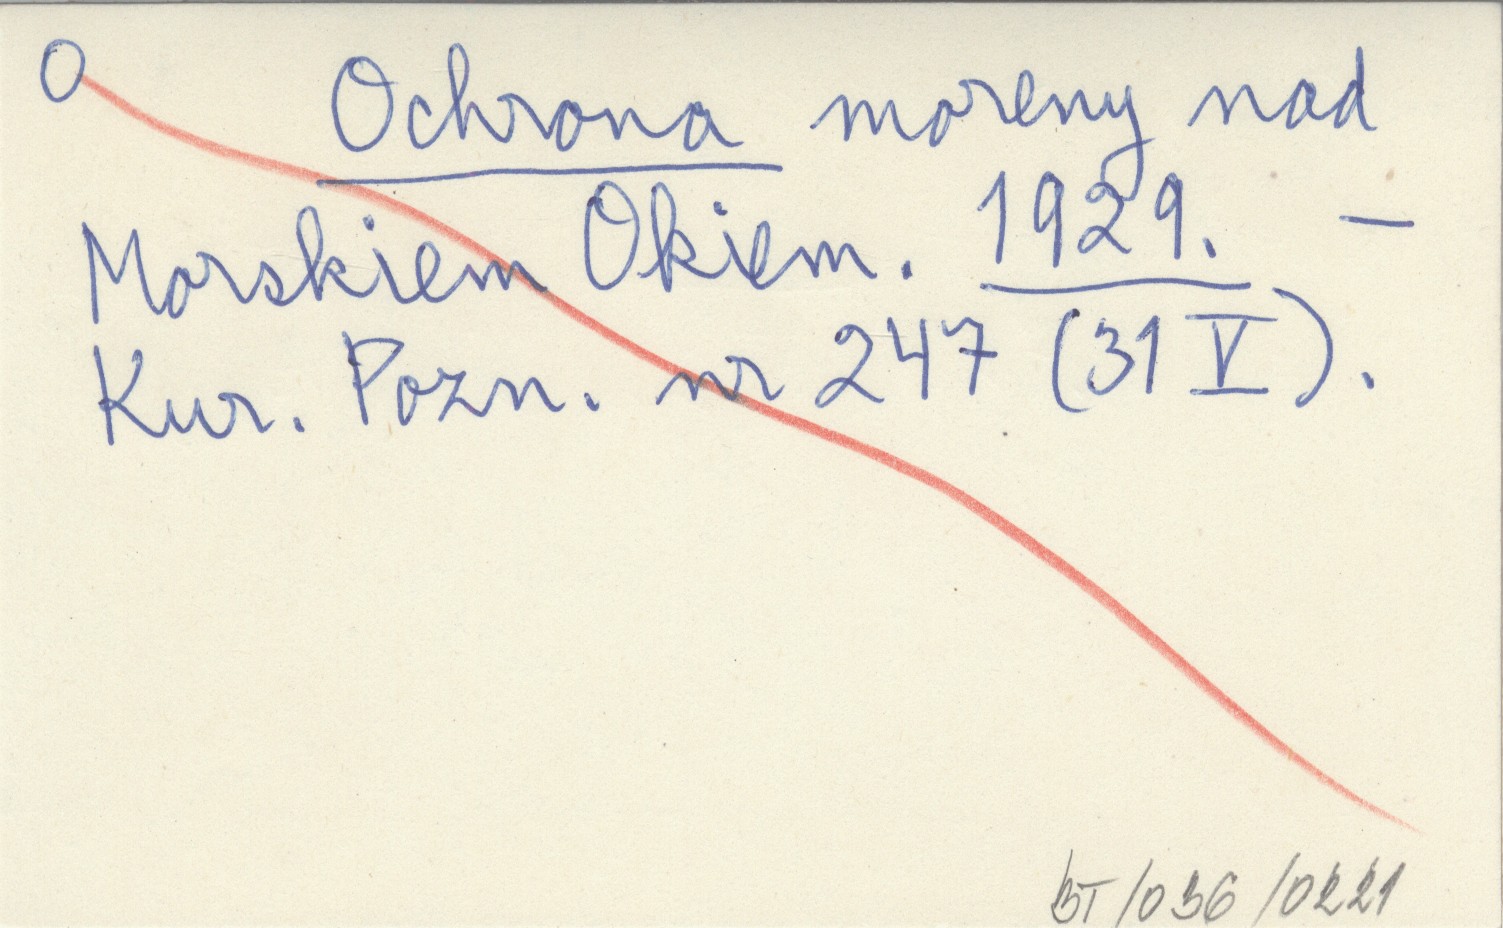 O
Ochrona moreny nad
Morskiem Okiem. 1929. –
Kur. Pozn. nr 247 (31 V).
BT/036/0221